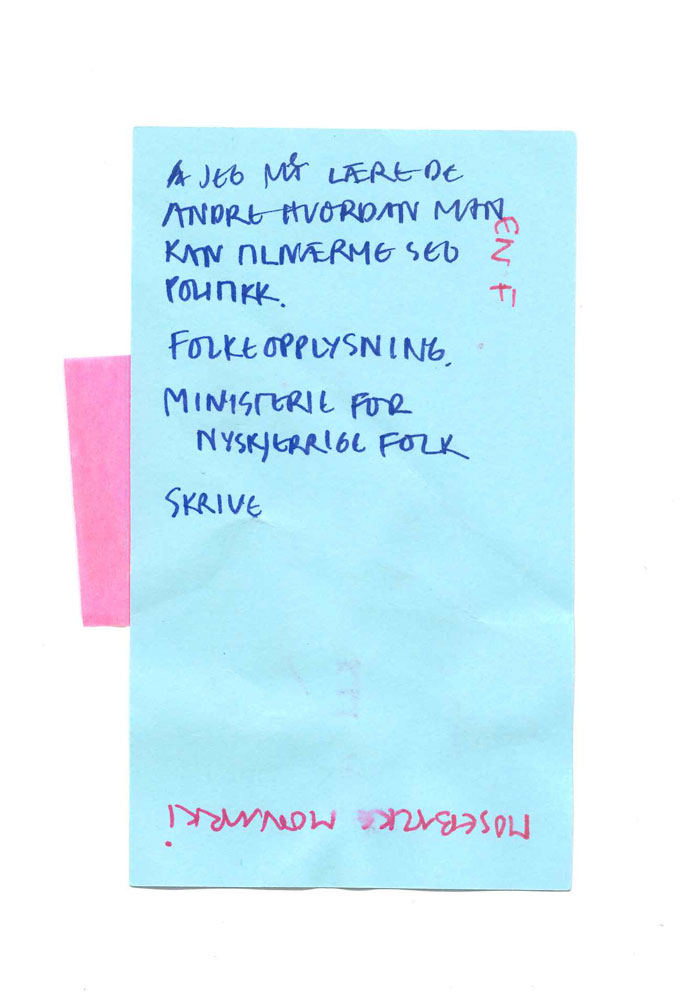 A JEG MÅ LÆRE DE
ANDRE HVORDAN MAN
KAN TILNÆRME SEG
POLITIKK.
FOLKEOPPLYSNING.
MINISTERIE FOR
NYSKJERRIGE FOLK
SKRIVE
EN F
MOSEBACKE MONARKi